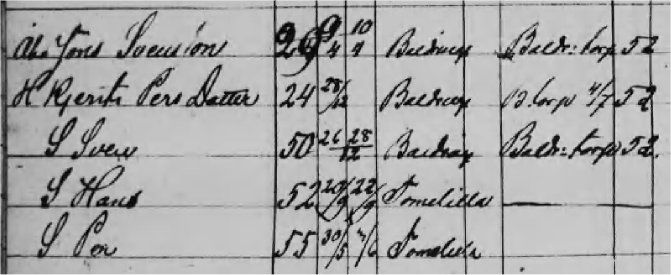 Åbo Jöns Svensson 29 9/4 10/4 Baldringe Baldr: torp 52
H Kjersti Pers Datter 24 28/12 Baldringe B. torp 4/7 52
S Sven 50 26 28/12 Baldringe Baldr: torp 52
S Hans 52 20/9 22/9 Tomelilla
S Per 55 30/5 Tomelilla